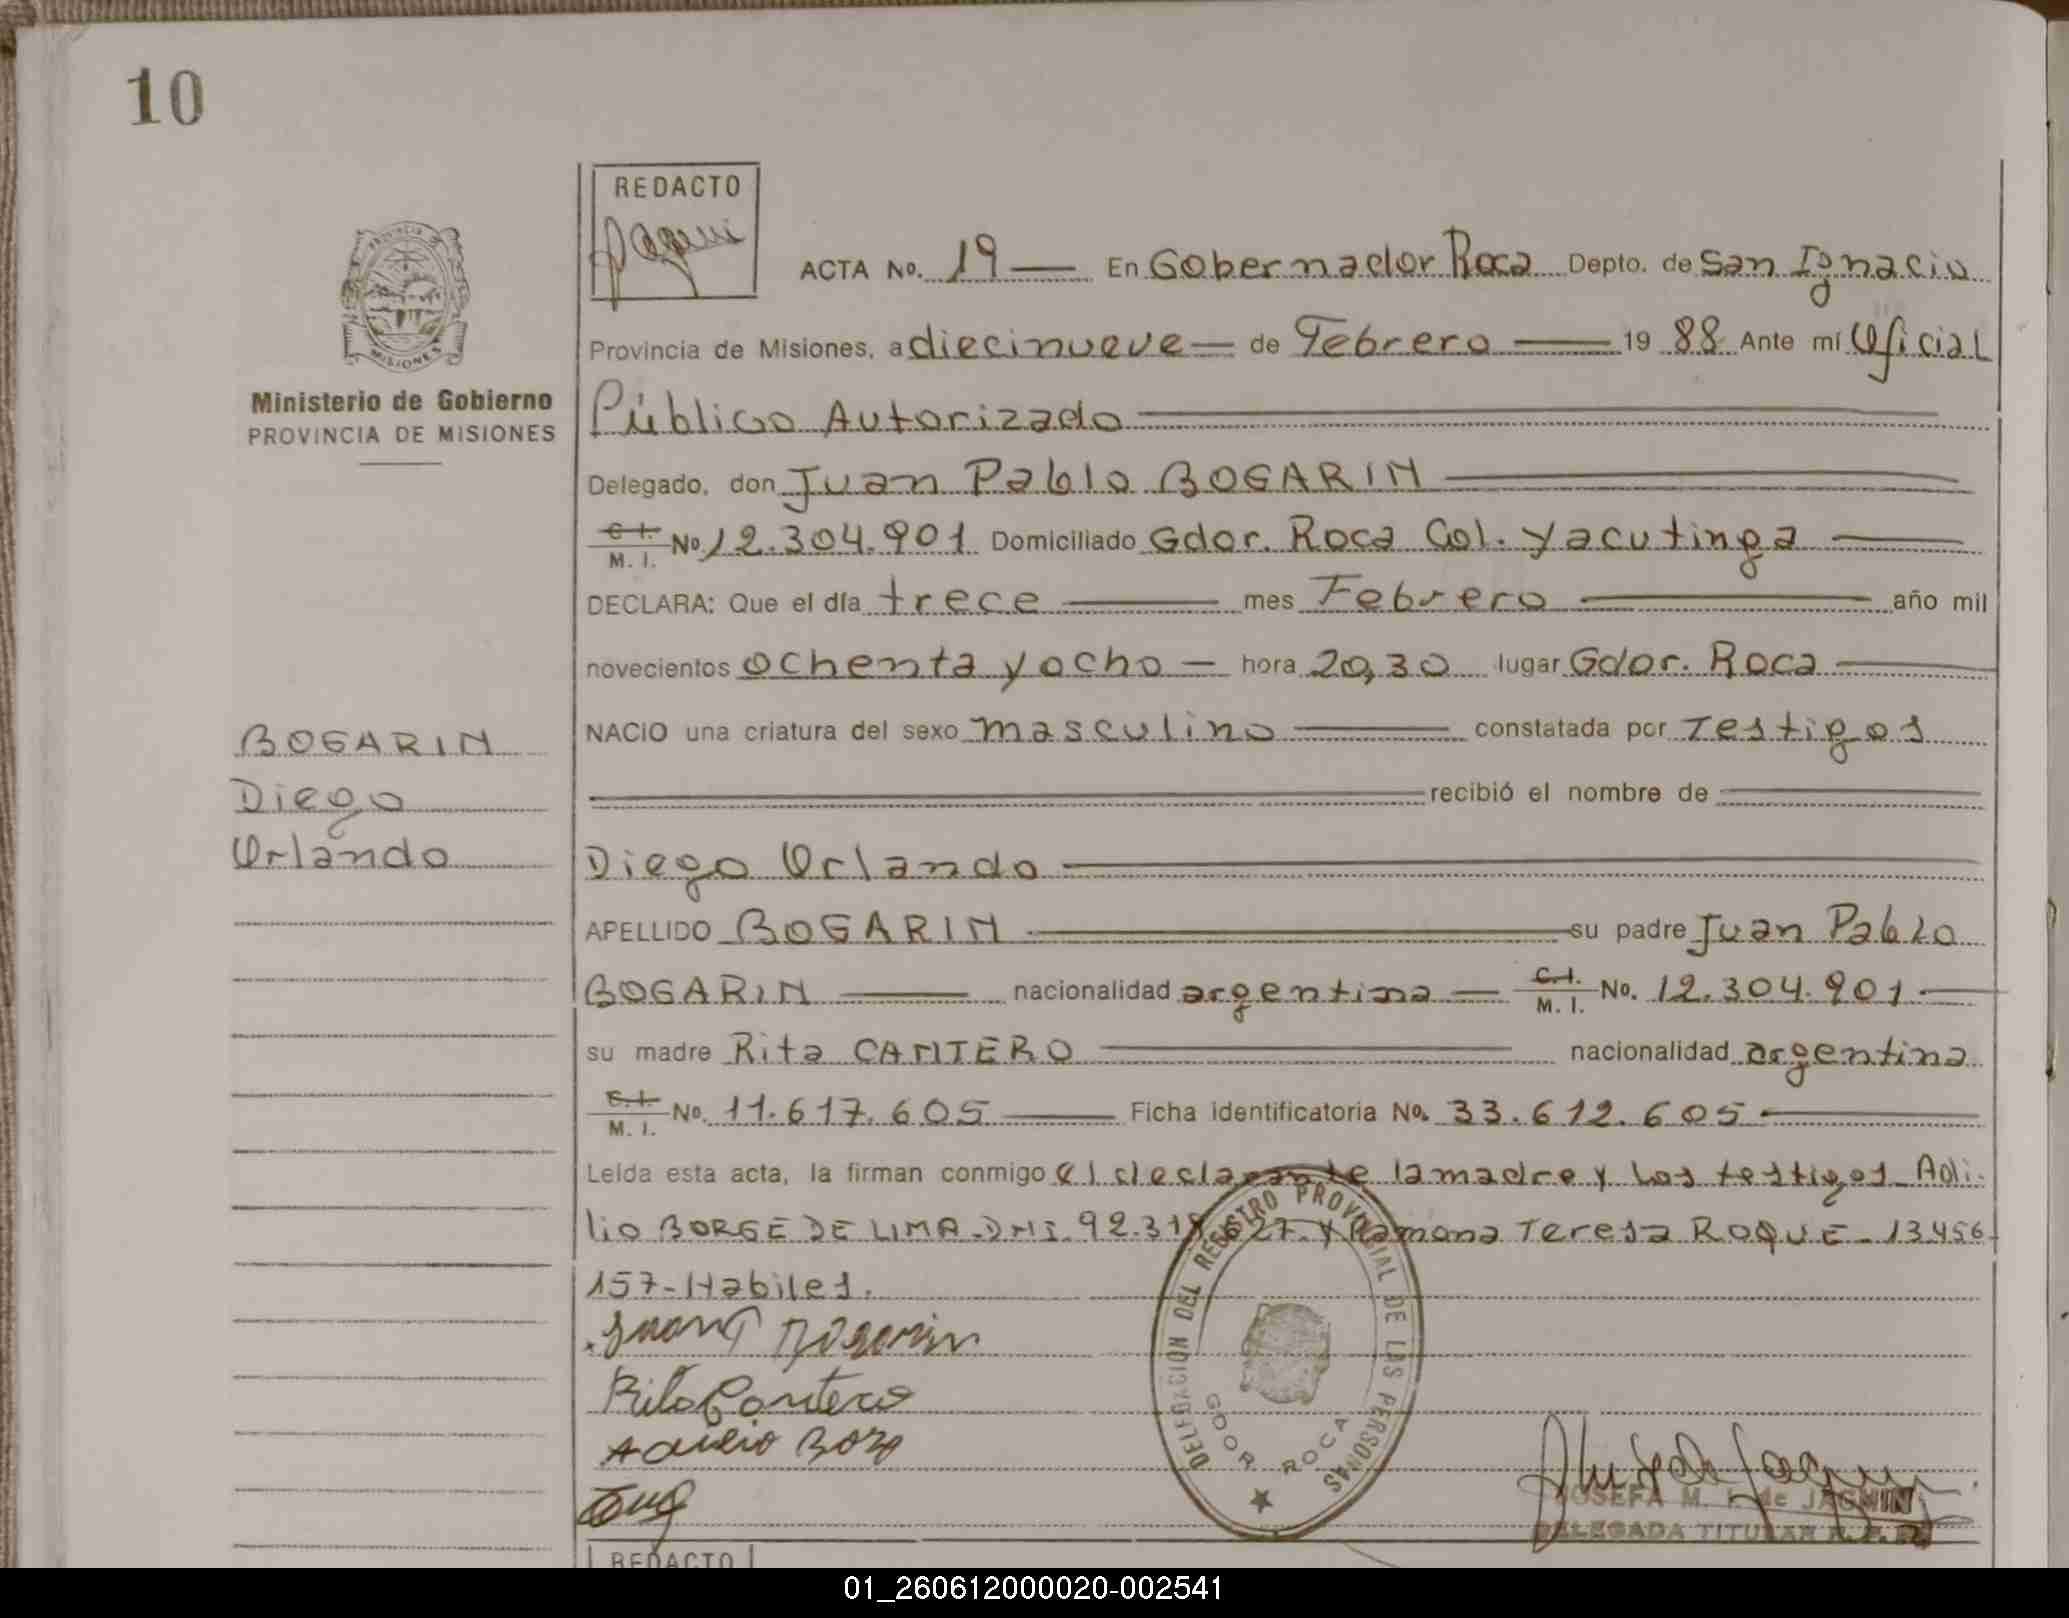 10
REDACTO
ACTA No. 19 — En Gobernador Roca Depto. de San Ignacio
PROVINCIA DE
MISIONES
Ministerio de Gobierno
PROVINCIA DE MISIONES
Provincia de Misiones, a diecinueve — de Febrero — 19 88 Ante mí Oficial
Público Autorizado
Delegado, don Juan Pablo BOGARIN
C.I. M. I. No. 12.304.901 Domiciliado Gdor. Roca Col. Yacutinga
DECLARA: Que el día trece — mes Febrero — año mil
novecientos ochenta y ocho — hora 20,30 lugar Gdor. Roca
NACIO una criatura del sexo masculino — constatada por Testigos
recibió el nombre de
BOGARIN
Diego
Orlando
Diego Orlando
APELLIDO BOGARIN — su padre Juan Pablo
BOGARIN — nacionalidad argentina — C.I. M. I. No. 12.304.901
su madre Rita CANTERO — nacionalidad argentina
C.I. M. I. No. 11.617.605 — Ficha identificatoria No. 33.612.605
Leída esta acta, la firman conmigo el declarante la madre y los testigos Adi-
lio BORGE DE LIMA. DNI. 92.31 627. y Ramona Teresa ROQUE - 13.456.
157 - Habiles.
Bogarin
Rita Cantero
DELEGACION DEL REGISTRO PROVINCIAL DE LAS PERSONAS
GDOR ROCA
JOSEFA M. de JAGNIN
DELEGADA TITULAR
REDACTO
01_260612000020-002541